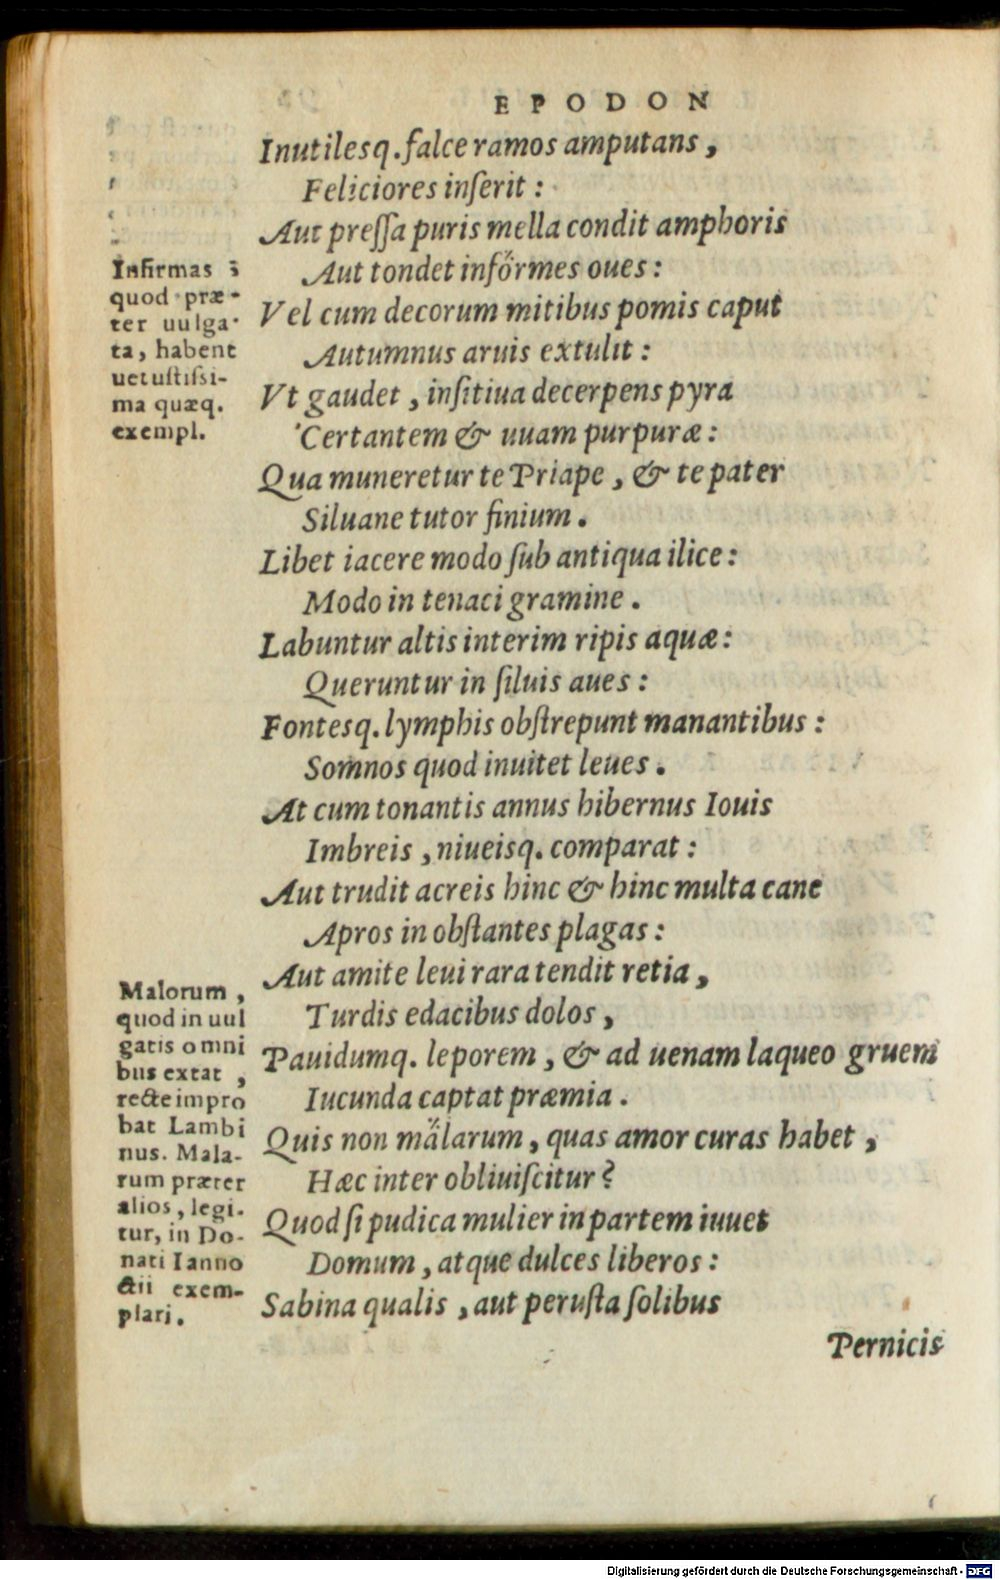 EPODON
Inutilesq. falce ramos amputans,
Feliciores inſerit:
Aut preſſa puris mella condit amphoris
Aut tondet infőrmes oues:
Vel cum decorum mitibus pomis caput
Autumnus aruis extulit:
Vt gaudet, inſitiua decerpens pyra
Certantem & uuam purpuræ:
Qua muneretur te Priape, & te pater
Siluane tutor finium.
Libet iacere modo ſub antiqua ilice:
Modo in tenaci gramine.
Labuntur altis interim ripis aquæ:
Queruntur in ſiluis aues:
Fontesq. lymphis obſtrepunt manantibus:
Somnos quod inuitet leues.
At cum tonantis annus hibernus Iouis
Imbreis, niueisq. comparat:
Aut trudit acreis hinc & hinc multa cane
Apros in obſtantes plagas:
Aut amite leui rara tendit retia,
Turdis edacibus dolos,
Pauidumq. leporem, & ad uenam laqueo gruem
Iucunda captat præmia.
Quis non ma̋larum, quas amor curas habet,
Hæc inter obliuiſcitur?
Quod ſi pudica mulier in partem iuuet
Domum, atque dulces liberos:
Sabina qualis, aut peruſta ſolibus
Pernicis
Infirmas ĩ
quod præ-
ter uulga-
ta, habent
uetuſtiſsi-
ma quæq.
exempl.
Malorum,
quod in uul
gatis omni
bus extat,
recte impro
bat Lambi
nus. Mala-
rum præter
alios, legi-
tur, in Do-
nati Ianno
ctii exem-
plari.
Digitalisierung gefördert durch die Deutsche Forschungsgemeinschaft - DFG